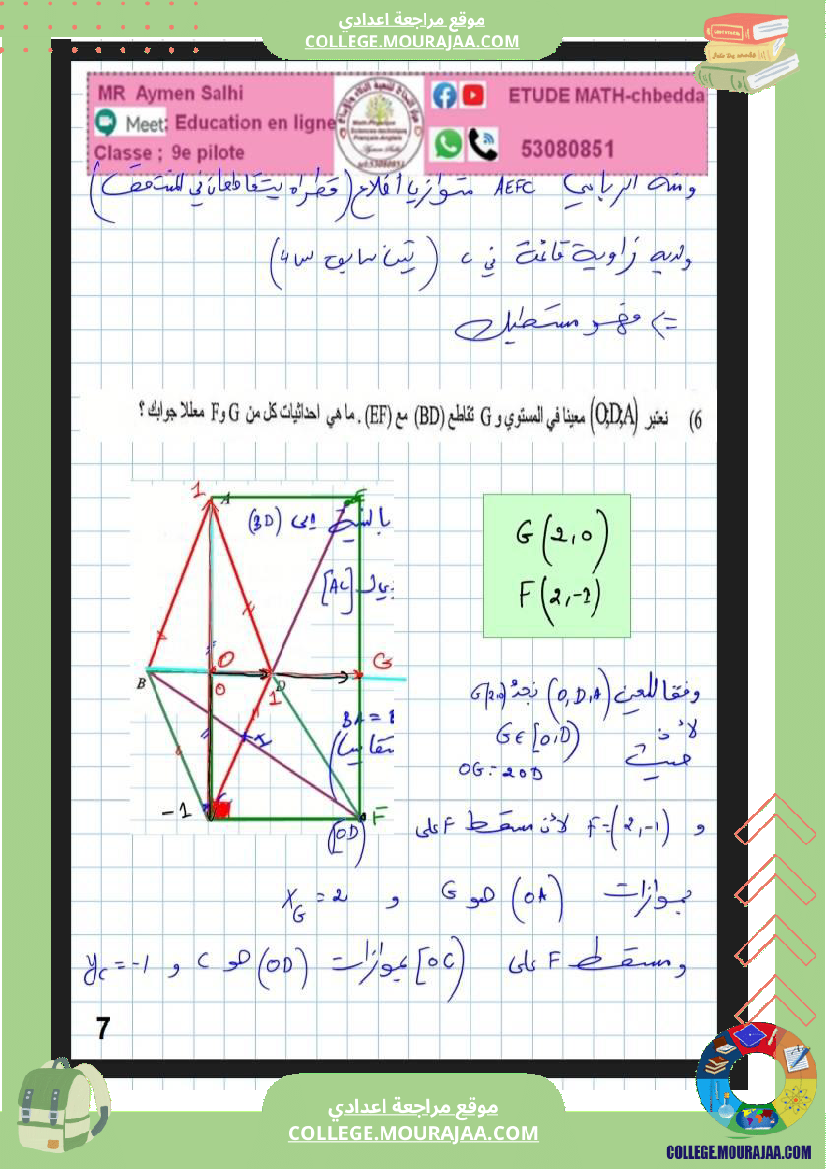 موقع مراجعة اعدادي
COLLEGE.MOURAJAA.COM
MR Aymen Salhi
Meet: Education en ligne
Classe ; 9e pilote
ETUDE MATH-chbedda
53080851
ومنه الرباعي AEFC متوازي أضلاع (قطراه يتقاطعان في المنتصف)
ولديه زاوية قائمة في C (تبيّن سابق س 4)
=> فهو مستطيل
6) نعتبر (O;D;A) معينا في المستوي و G تقاطع (BD) مع (EF) . ما هي احداثيات كل من G و F معللا جوابك ؟
1
A
E
(BD)
[AC]
G(2,0)
F(2,-1)
B
O
0
D
1
G
I
-1
F
[OD)
وفقا للمعين (O,D,A) نجد G(2,0)
لأن G∈[O,D)
حيث OG=2OD
و F=(2,-1) لأن مسقط F على [OD)
بموازات (OA) هو G و xG = 2
ومسقط F على [OC) بموازات (OD) هو C و yC = -1
7
موقع مراجعة اعدادي
COLLEGE.MOURAJAA.COM
COLLEGE.MOURAJAA.COM